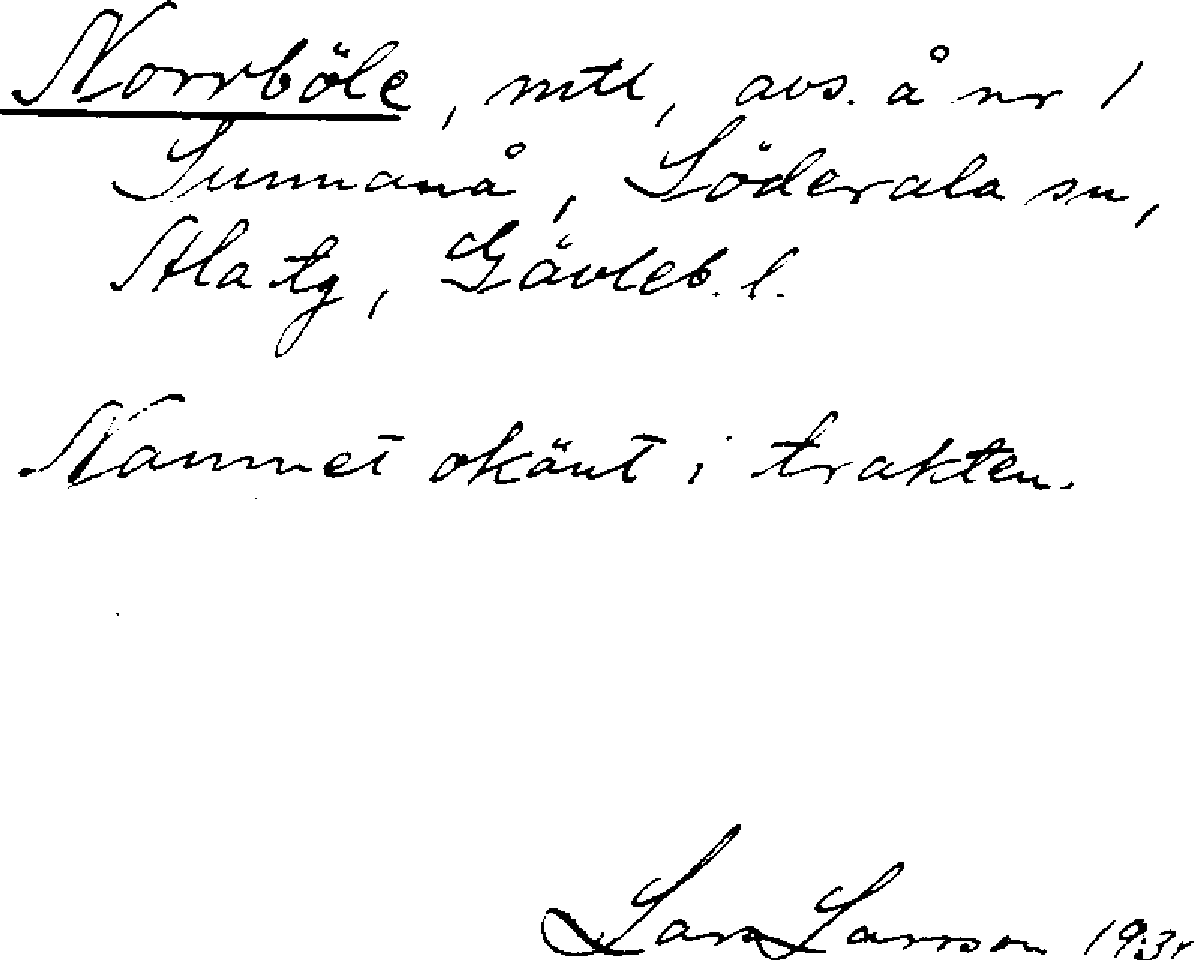 Norrböle, mtl, avs. å nr 1
Sunnanå, Söderala sn,
Ala tg, Gävleb. l.
Namnet okänt i trakten.
Lars Larsson